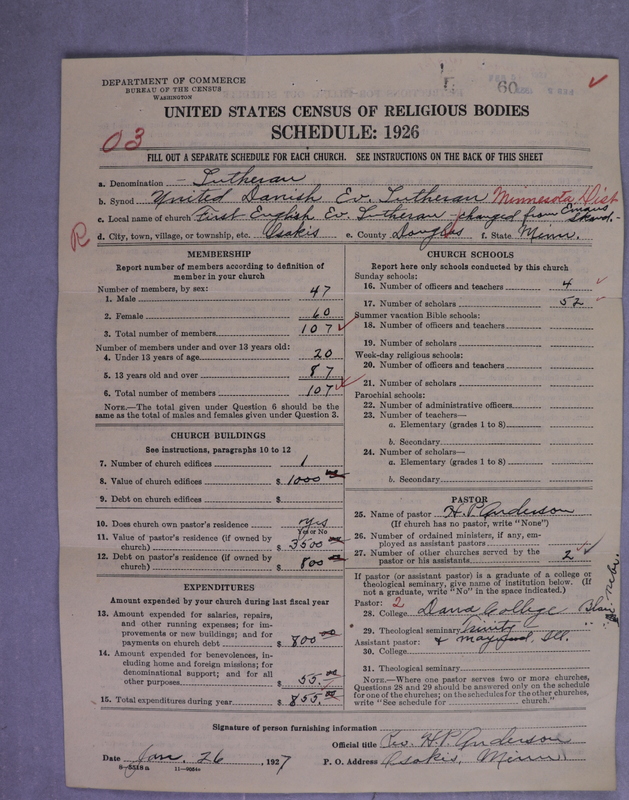 DEPARTMENT OF COMMERCE
BUREAU OF THE CENSUS
WASHINGTON
60
UNITED STATES CENSUS OF RELIGIOUS BODIES
SCHEDULE: 1926
03
FILL OUT A SEPARATE SCHEDULE FOR EACH CHURCH. SEE INSTRUCTIONS ON THE BACK OF THIS SHEET
a. Denomination - Lutheran
b. Synod United Danish Ev. Lutheran Minnesota Dist
c. Local name of church First English Ev. Lutheran - changed from Emaus Skand.-
R
d. City, town, village, or township, etc. Osakis e. County Douglas f. State Minn.
MEMBERSHIP
Report number of members according to definition of
member in your church
Number of members, by sex:
1. Male 47
2. Female 60
3. Total number of members 107
Number of members under and over 13 years old:
4. Under 13 years of age 20
5. 13 years old and over 87
6. Total number of members 107
NOTE.—The total given under Question 6 should be the
same as the total of males and females given under Question 3.
CHURCH BUILDINGS
See instructions, paragraphs 10 to 12
7. Number of church edifices 1
8. Value of church edifices $ 1000
9. Debt on church edifices $
10. Does church own pastor's residence Yes
Yes or No
11. Value of pastor's residence (if owned by
church) $ 3500
12. Debt on pastor's residence (if owned by
church) $ 800
EXPENDITURES
Amount expended by your church during last fiscal year
13. Amount expended for salaries, repairs,
and other running expenses; for im-
provements or new buildings; and for
payments on church debt $ 800.00
14. Amount expended for benevolences, in-
cluding home and foreign missions; for
denominational support; and for all
other purposes $ 55.00
15. Total expenditures during year $ 855.00
CHURCH SCHOOLS
Report here only schools conducted by this church
Sunday schools:
16. Number of officers and teachers 4
17. Number of scholars 52
Summer vacation Bible schools:
18. Number of officers and teachers
19. Number of scholars
Week-day religious schools:
20. Number of officers and teachers
21. Number of scholars
Parochial schools:
22. Number of administrative officers
23. Number of teachers—
a. Elementary (grades 1 to 8)
b. Secondary
24. Number of scholars—
a. Elementary (grades 1 to 8)
b. Secondary
PASTOR
25. Name of pastor H.P. Anderson
(If church has no pastor, write "None")
26. Number of ordained ministers, if any, em-
ployed as assistant pastors
27. Number of other churches served by the
pastor or his assistants 2
If pastor (or assistant pastor) is a graduate of a college or
theological seminary, give name of institution below. (If
not a graduate, write "No" in the space indicated.)
Pastor: 2
28. College Dana College Blair Nebr.
29. Theological seminary Trinity "
Assistant pastor: & Maywood, Ill.
30. College
31. Theological seminary
NOTE.—Where one pastor serves two or more churches,
Questions 28 and 29 should be answered only on the schedule
for one of the churches; on the schedules for the other churches,
write "See schedule for church."
Signature of person furnishing information
Official title Rev. H.P. Anderson
Date Jan. 26, 1927 P. O. Address Osakis, Minn
8-5518a 11-9084a